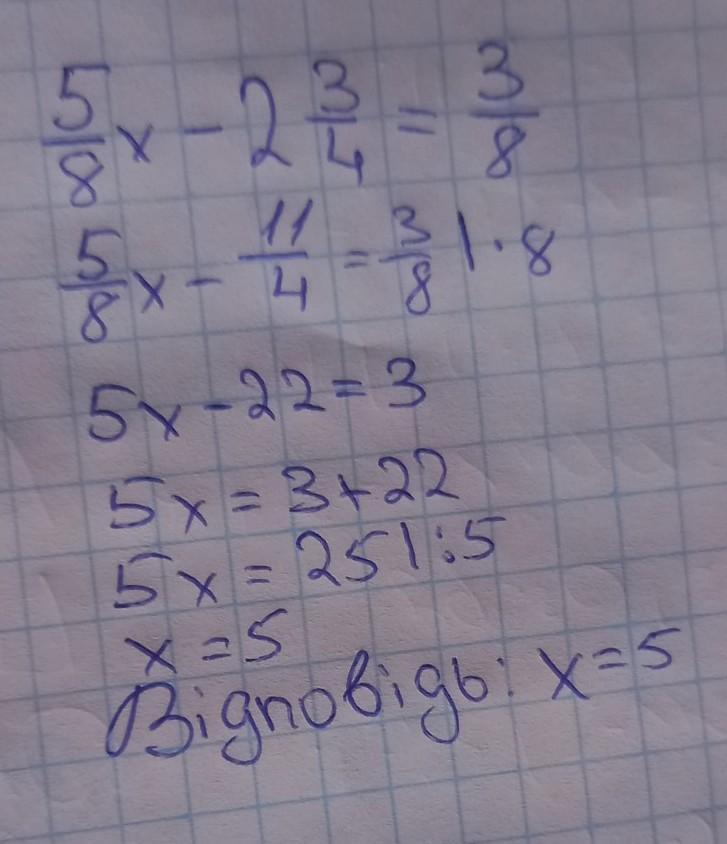 5/8 x - 2 3/4 = 3/8
5/8 x - 11/4 = 3/8 | · 8
5x - 22 = 3
5x = 3 + 22
5x = 25 | : 5
x = 5
Відповідь: x = 5